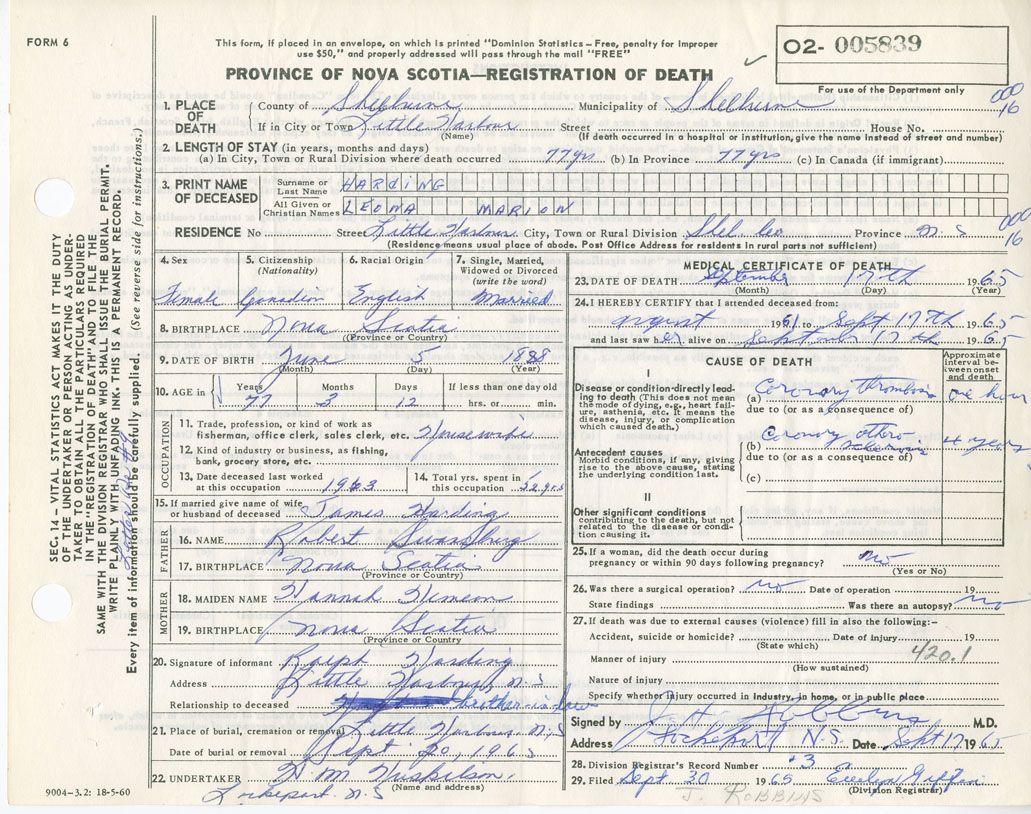 FORM 6
This form, if placed in an envelope, on which is printed "Dominion Statistics – Free, penalty for improper
use $50," and properly addressed will pass through the mail "FREE"
O2- 005839
PROVINCE OF NOVA SCOTIA—REGISTRATION OF DEATH
For use of the Department only
1. PLACE OF DEATH
County of Shelburne Municipality of Shelburne
000 16
If in City or Town Little Harbour Street House No.
(Name) (If death occurred in a hospital or institution, give the name instead of street and number)
2. LENGTH OF STAY (in years, months and days)
(a) In City, Town or Rural Division where death occurred 77 yrs (b) In Province 77 yrs (c) In Canada (if immigrant)
3. PRINT NAME OF DECEASED
Surname or Last Name HARDING
All Given or Christian Names LEONA MARION
RESIDENCE No Street Little Harbour City, Town or Rural Division Shel Co Province N. S
000 16
(Residence means usual place of abode. Post Office Address for residents in rural parts not sufficient)
4. Sex
Female
5. Citizenship (Nationality)
Canadian
6. Racial Origin
English
7. Single, Married, Widowed or Divorced (write the word)
Married
8. BIRTHPLACE Nova Scotia
(Province or Country)
9. DATE OF BIRTH June 5 1888
(Month) (Day) (Year)
10. AGE in Years Months Days If less than one day old
77 3 12 hrs. or min.
OCCUPATION
11. Trade, profession, or kind of work as
fisherman, office clerk, sales clerk, etc. Housewife
12. Kind of industry or business, as fishing,
bank, grocery store, etc.
13. Date deceased last worked
at this occupation 1963
14. Total yrs. spent in
this occupation 52 yrs
15. If married give name of wife
or husband of deceased James Harding
FATHER
16. NAME Robert Swansburg
17. BIRTHPLACE Nova Scotia
(Province or Country)
MOTHER
18. MAIDEN NAME Hannah
19. BIRTHPLACE Nova Scotia
(Province or Country)
20. Signature of informant Ralph Harding
Address Little Harbour, N. S
Relationship to deceased brother-in-law
21. Place of burial, cremation or removal Little Harbour N. S
Date of burial or removal Sept. 20, 1965
22. UNDERTAKER H. M. Huskilson,
(Name and address)
Lockeport N. S
9004–3.2: 18-5-60
MEDICAL CERTIFICATE OF DEATH
23. DATE OF DEATH September 17th 1965
(Month) (Day) (Year)
24. I HEREBY CERTIFY that I attended deceased from:
August 1961 to Sept 17th 1965
and last saw her alive on September 17th 1965
CAUSE OF DEATH
Approximate interval between onset and death
I
Disease or condition directly leading to death (This does not mean the mode of dying, e.g., heart failure, asthenia, etc. It means the disease, injury, or complication which caused death.)
(a) Coronary thrombosis one hour
due to (or as a consequence of)
Antecedent causes
Morbid conditions, if any, giving rise to the above cause, stating the underlying condition last.
(b) Coronary 4 years
due to (or as a consequence of)
(c)
II
Other significant conditions contributing to the death, but not related to the disease or condition causing it.
25. If a woman, did the death occur during
pregnancy or within 90 days following pregnancy? no
(Yes or No)
26. Was there a surgical operation? no Date of operation 19
State findings Was there an autopsy? no
27. If death was due to external causes (violence) fill in also the following:–
Accident, suicide or homicide? Date of injury 19
(State which)
420.1
Manner of injury
(How sustained)
Nature of injury
Specify whether injury occurred in industry, in home, or in public place
Signed by J. H. Robbins M.D.
Address Lockeport N.S. Date Sept 17 1965
28. Division Registrar's Record Number 3
29. Filed Sept 30 1965 Evelyn
(Division Registrar)
J. ROBBINS
SEC. 14 – VITAL STATISTICS ACT MAKES IT THE DUTY
OF THE UNDERTAKER OR PERSON ACTING AS UNDER-
TAKER TO OBTAIN ALL THE PARTICULARS REQUIRED
IN THE "REGISTRATION OF DEATH" AND TO FILE THE
SAME WITH THE DIVISION REGISTRAR WHO SHALL ISSUE THE BURIAL PERMIT.
WRITE PLAINLY WITH UNFADING INK. THIS IS A PERMANENT RECORD.
Every item of information should be carefully supplied. (See reverse side for instructions.)